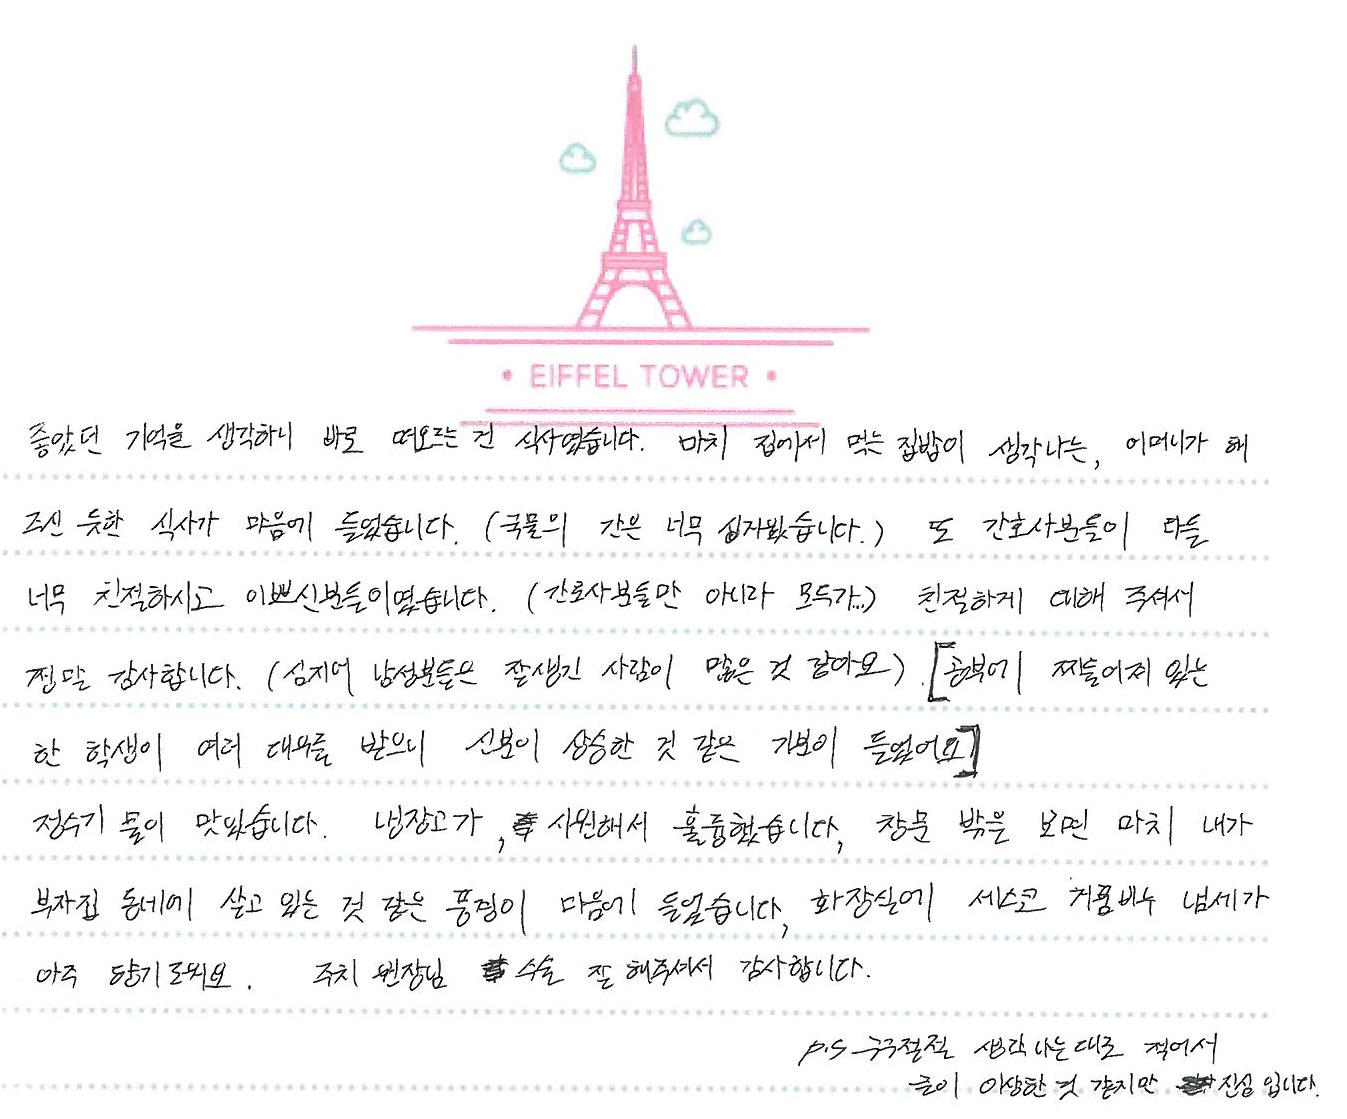 • EIFFEL TOWER •
좋았던 기억을 생각하니 바로 떠오르는 건 식사였습니다. 마치 집에서 먹는 집밥이 생각나는, 어머니가 해
주신 듯한 식사가 마음에 들었습니다. (국물의 간은 너무 심심했습니다.) 또 간호사분들이 다들
너무 친절하시고 이쁘신분들이였습니다. (간호사분들만 아니라 모두가..) 친절하게 대해 주셔서
정말 감사합니다. (심지어 남성분들은 잘생긴 사람이 많은 것 같아요). [공부에 찌들어져 있는
한 학생이 여러 대우를 받으니 신분이 상승한 것 같은 기분이 들었어요]
정수기 물이 맛있습니다. 냉장고가, 시원해서 훌륭했습니다, 창문 밖을 보면 마치 내가
부자집 동네에 살고 있는 것 같은 풍경이 마음에 들었습니다, 화장실에 세스코 거품비누 냄세가
아주 향기로워요. 주치 원장님 수술 잘 해주셔서 감사합니다.
P.S 구구절절 생각나는대로 적어서
글이 이상한 것 같지만 진심입니다.